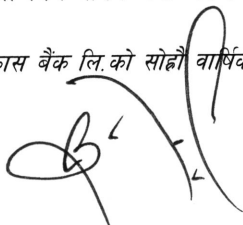 ास बैंक लि. को सोह्रौ वार्षिक